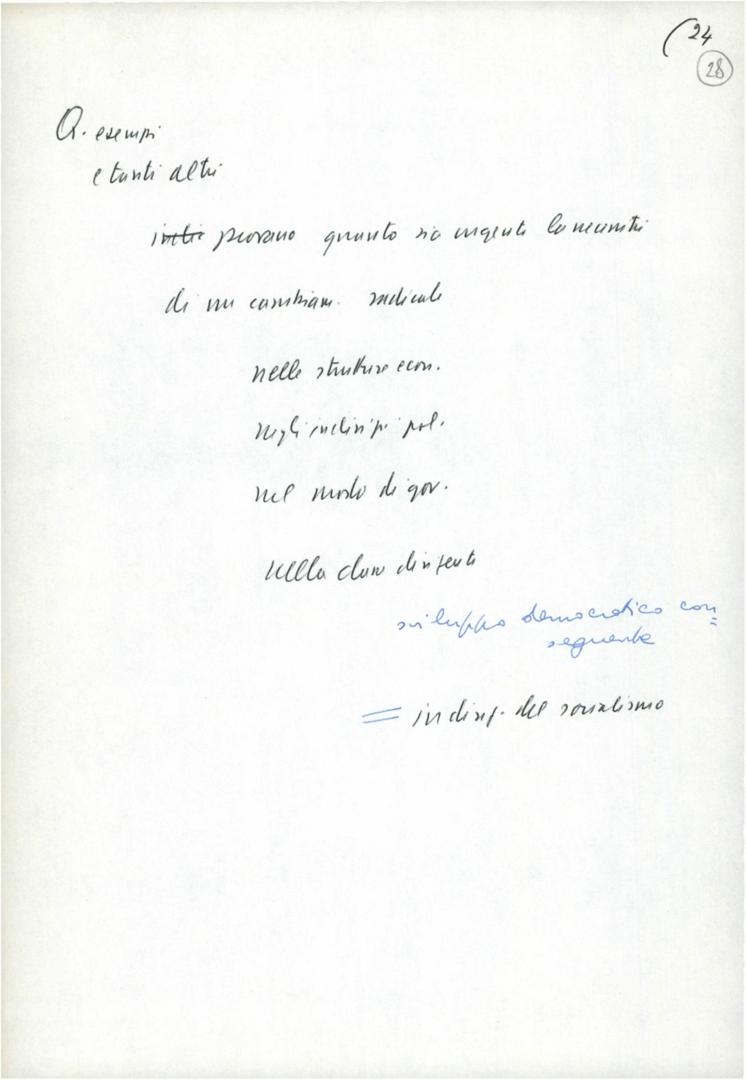 (24
28
Q. esempi
e tanti altri
provano quanto sia urgente la necessità
di un cambiam. radicale
nelle strutture econ.
negli indirizzi pol.
nel modo di gov.
nella classe dirigente
sviluppo democratico con=
seguente
= in direz. del socialismo